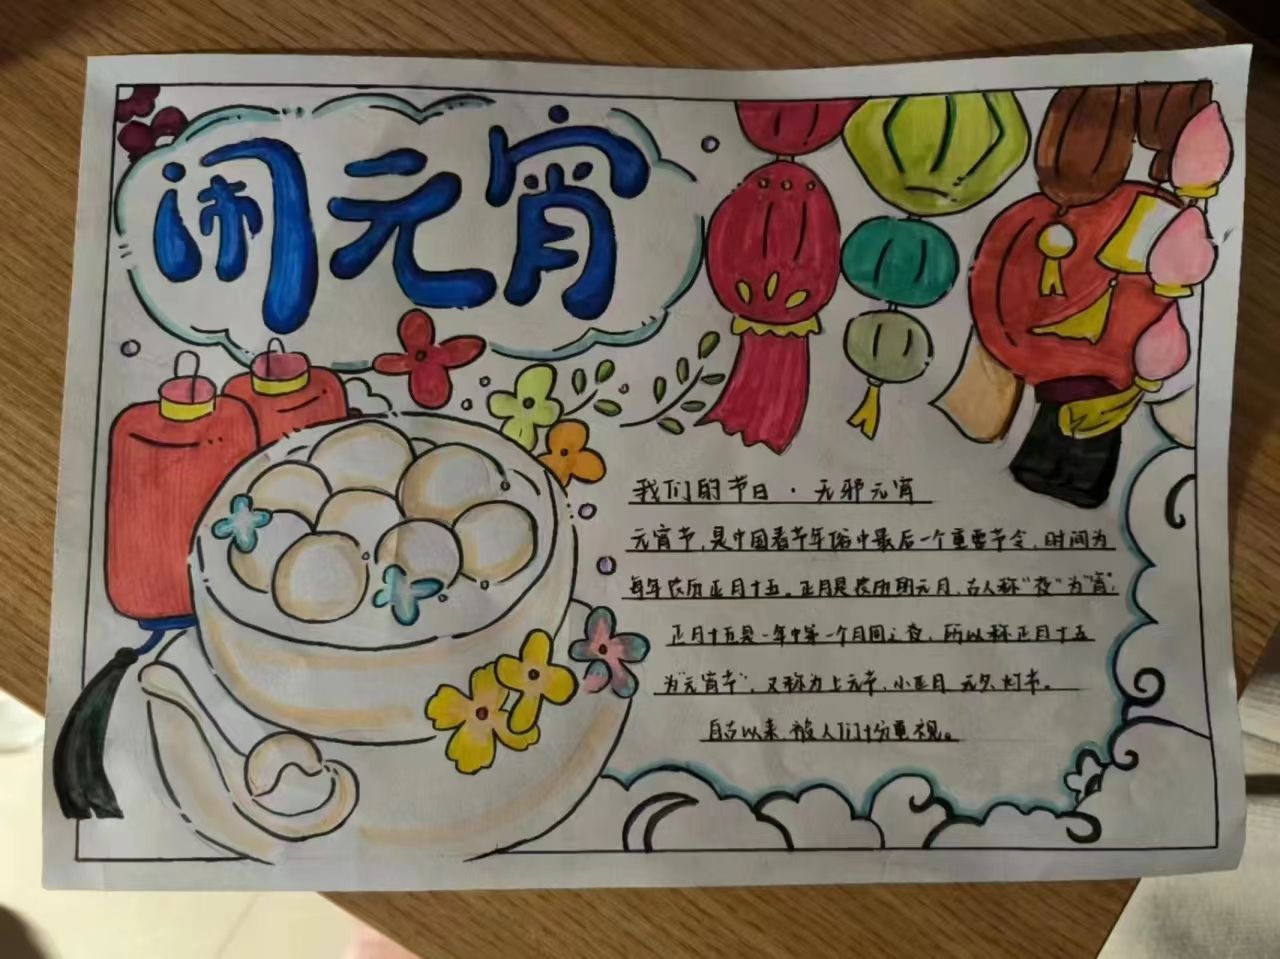 闹元宵
我们的节日·无邪元宵
元宵节,是中国春节年俗中最后一个重要节令,时间为
每年农历正月十五。正月是农历的元月,古人称"夜"为"宵",
正月十五是一年中第一个月圆之夜,所以称正月十五
为"元宵节",又称为上元节,小正月 元夕 灯节。
自古以来 被人们十分重视。